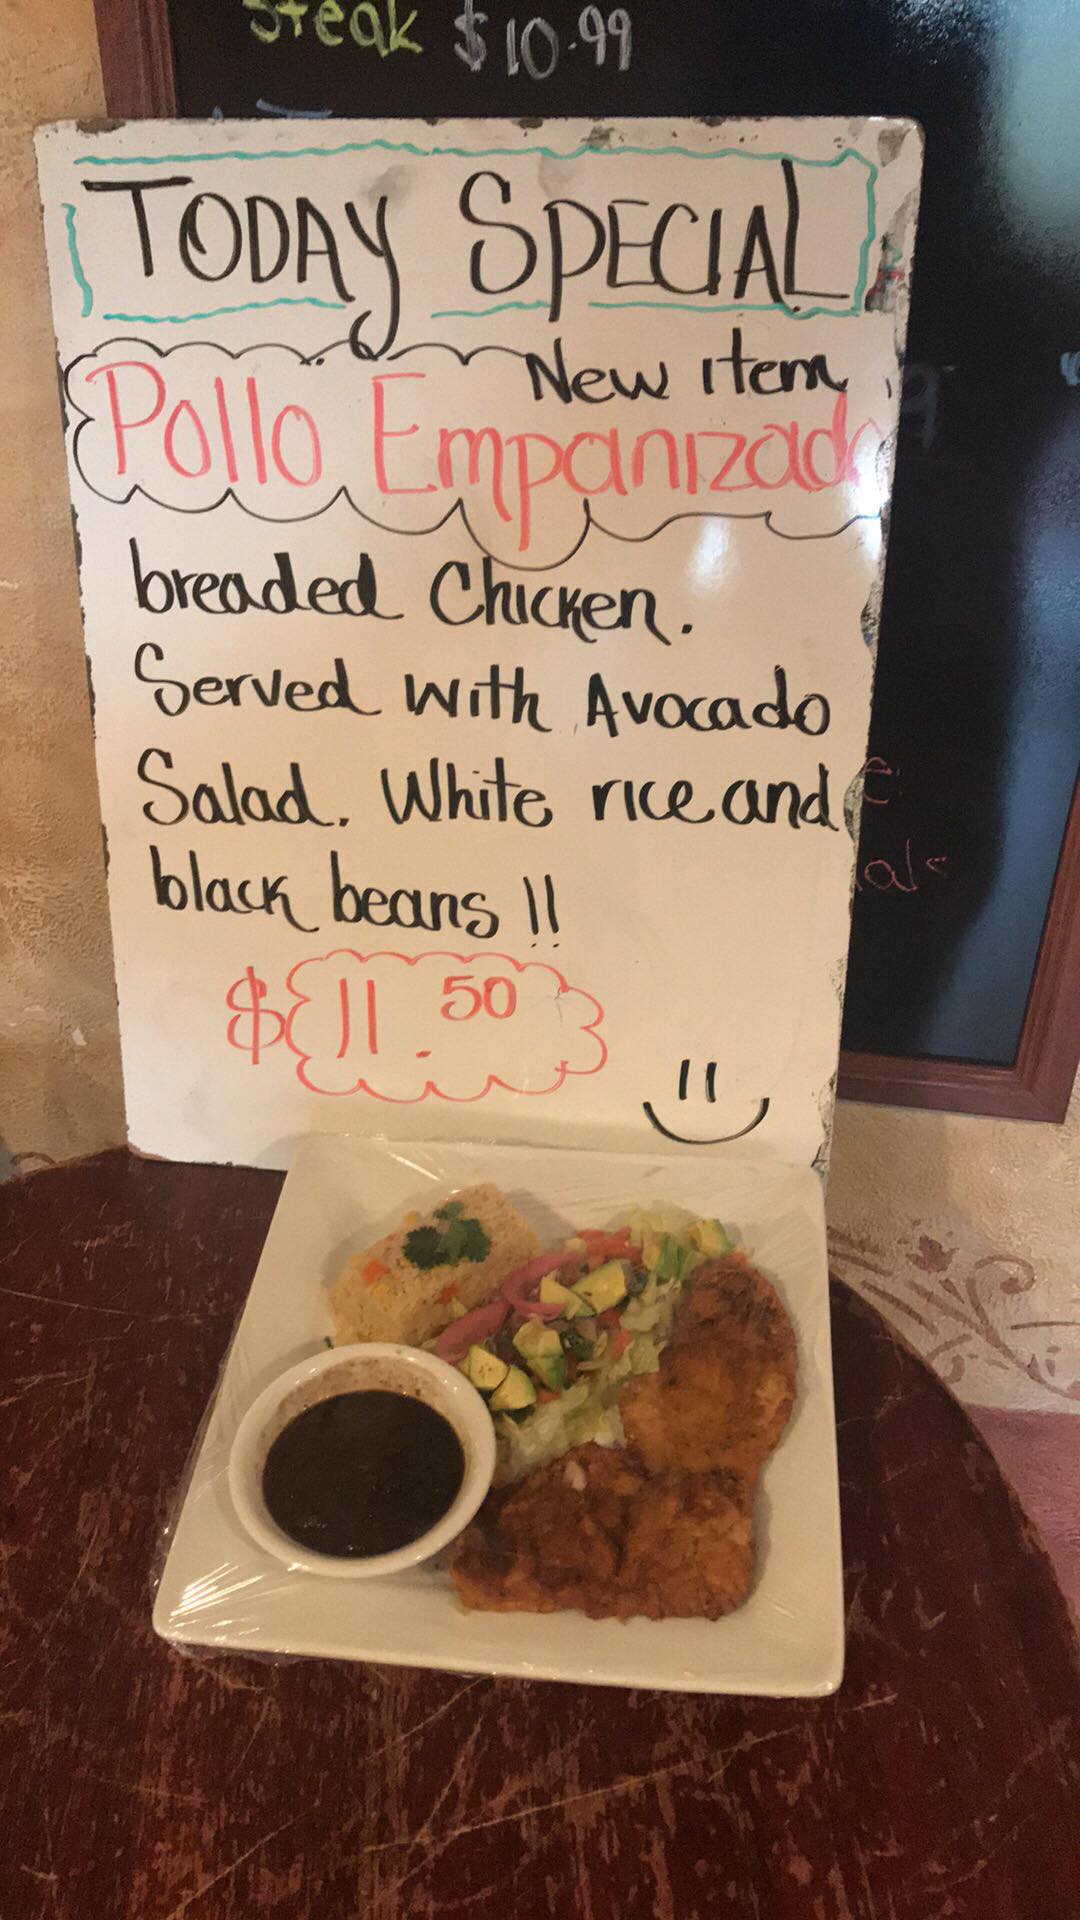 Steak $10.99
TODAY SPECIAL
New item
Pollo Empanizado
breaded Chicken.
Served with Avocado
Salad. White rice and
black beans !!
$11.50